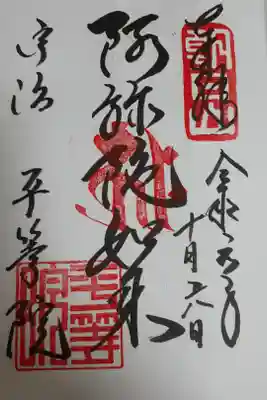 奉拝
朝日山
令和元年
十月
阿弥陀如来
宇治 平等院
平等院